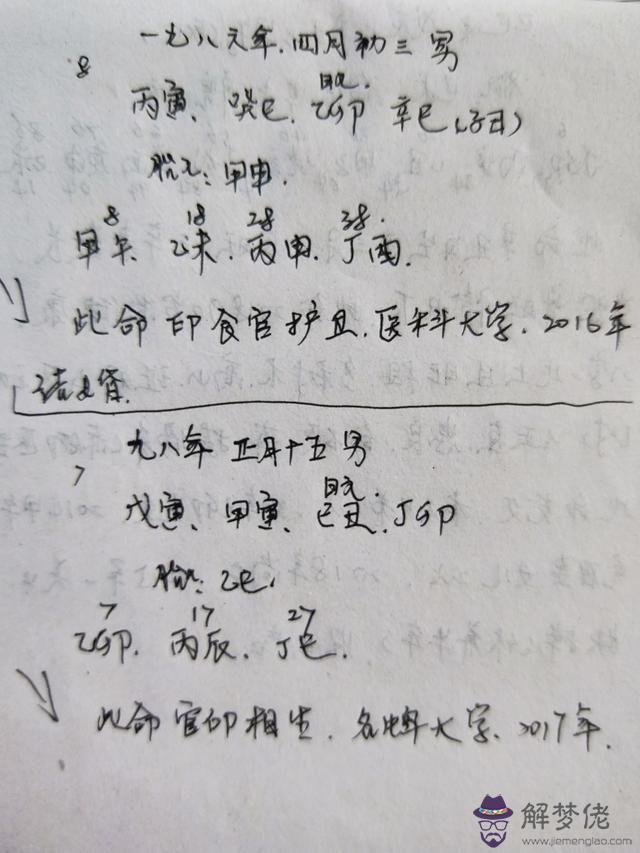 一九八六年.四月初三 男
8
日元.
丙寅、癸巳、乙卯 辛巳(子丑)
胎元:甲申.
8 18 28 38.
甲午、乙未、丙申、丁酉.
此命印食官护旦.医科大学.2016年
结婚.
九八年 正月十五男
7
日元:
戊寅、甲寅、己丑、丁卯
胎元:乙巳,
7 17 27
乙卯.丙辰、丁巳.
此命官印相生.名牌大学、2017年.
解梦佬
www.jiemenglao.com